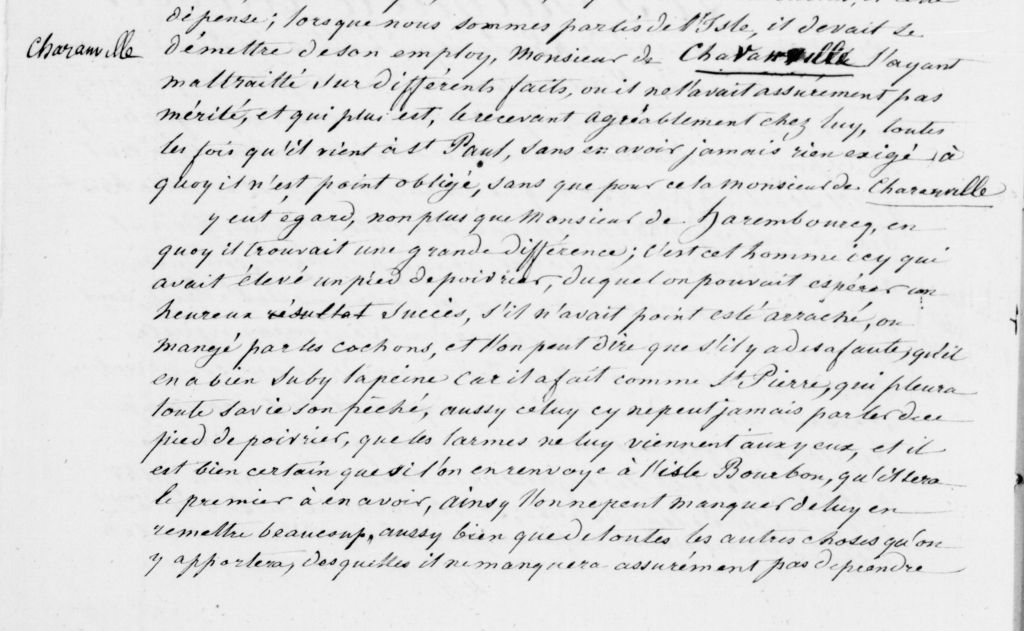 dépense; lorsque nous sommes partis de l'Isle, il devait se
Charanville
démettre de son employ, Monsieur de Charanville l'ayant
maltraitté sur différents faits, ou il ne l'avait assurément pas
mérité, et qui plus est, le recevant agréablement chez luy, toutes
les fois qu'il vient à St Paul, sans en avoir jamais rien exigé à
quoy il n'est point obligé, sans que pour cela monsieur de Charanville
y eut égard, non plus que Monsieur de Harembourcq, en
quoy il trouvait une grande différence; c'est cet homme icy qui
avait élevé un pied de poivrier, duquel on pouvait espérer un
heureux résultat succès, s'il n'avait point esté arraché, ou
mangé par les cochons, et l'on peut dire que s'il y a de sa faute, qu'il
en a bien suby la peine car il a fait comme St Pierre, qui pleura
toute sa vie son péché, aussy celuy cy ne peut jamais parler de ce
pied de poivrier, que les larmes ne luy viennent aux yeux, et il
est bien certain que si l'on en renvoye à l'isle Bourbon, qu'il sera
le premier à en avoir, ainsy l'on ne peut manquer de luy en
remettre beaucoup, aussy bien que de toutes les autres choses qu'on
y apportera, desquelles il ne manquera assurément pas de prendre